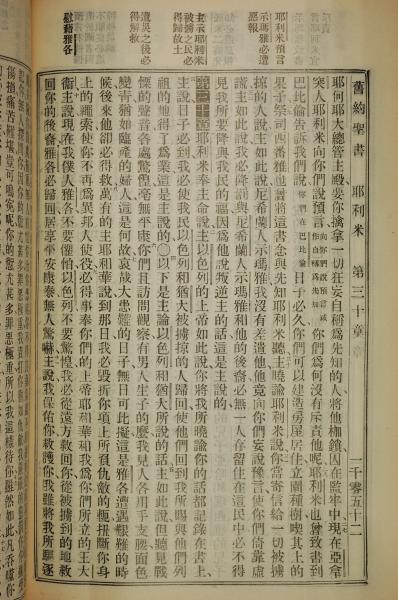 舊約聖書 耶利米 第三十章 一千零五十二
耶利米預言
示瑪雅必遭
惡報
主示耶利米
被擄之民必
得歸故土
遭災之後必
得解救
慰藉雅各
耶何耶大總管主殿要你擒拿一切狂妄自稱為先知的人將他枷鎖囚在監牢中現在亞拿
突人耶利米向你們說預言你們為何沒有斥責他呢耶利米也曾致書到
巴比倫告訴我們說日子必久你們可以建造房屋居住立園種樹喫其上的
果子祭司西番雅也嘗將這書念與先知耶利米聽主曉諭耶利米說你當寄信給一切被擄
掠的人說主如此說尼希蘭人示瑪雅我沒有差遣他他竟向你們妄說預言使你們倚靠虛
謊主如此說我必降罰與尼希蘭人示瑪雅和他的後裔必無一人存留住在這民中必不得
見我所要降與我民的福因為他說叛逆主的話這是主說的
第三十章耶利米奉主命說主以色列的上帝如此說你將我所曉諭你的話都記錄在書上
主說日子必到我必使我民以色列和猶大被擄掠的人歸回使他們回到我所賜與他們列
祖的地得了為業這是主說的〇以下是主論以色列和猶大所說的話主如此說但聽見戰
慄的聲音各處驚惶毫無平康你們且訪問觀察有男人生子的麼我見人各用手支腰面色
變青猶如臨產的婦人這是何故哀哉大患難的日子無日可比擬這是雅各遭遇艱難的時
候後來他卻必得救萬有的主耶和華說到那日我必毀折你項上所負仇敵的軛扭斷你身
上的繩索使你不再為異邦人使役必得事奉你們的上帝耶和華和我為你們所立的王大
衛主說現在我僕人雅各不要懼怕以色列不要驚惶我必從遠方救回你從被擄到的地救
回你的後裔雅各必歸回居享平安康泰無人驚嚇主說我保佑你救護你我雖將我所驅逐